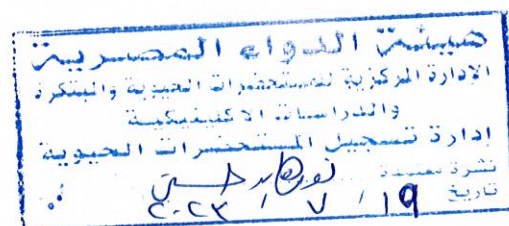 هيئة الدواء المصرية
الإدارة المركزية للمستحضرات الحيوية والمبتكرة
والدراسات الاكلينيكية
إدارة تسجيل المستحضرات الحيوية
نشرة معتمدة
تاريخ ١٩ / ٧ / ٢٠٢٣